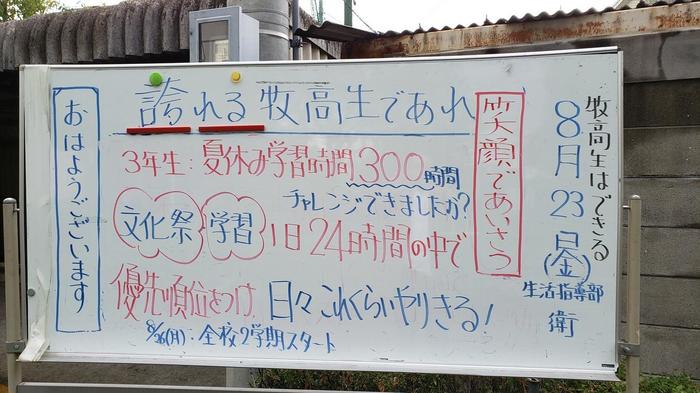 牧高生はできる
8月23日(金)
生活指導部
衛
誇れる牧高生であれ
笑顔であいさつ
おはようございます
3年生:夏休み学習時間300時間
チャレンジできましたか?
文化祭 学習 1日24時間の中で
優先順位をつけ、日々これくらいやりきる!
8/26(月)・全校2学期スタート